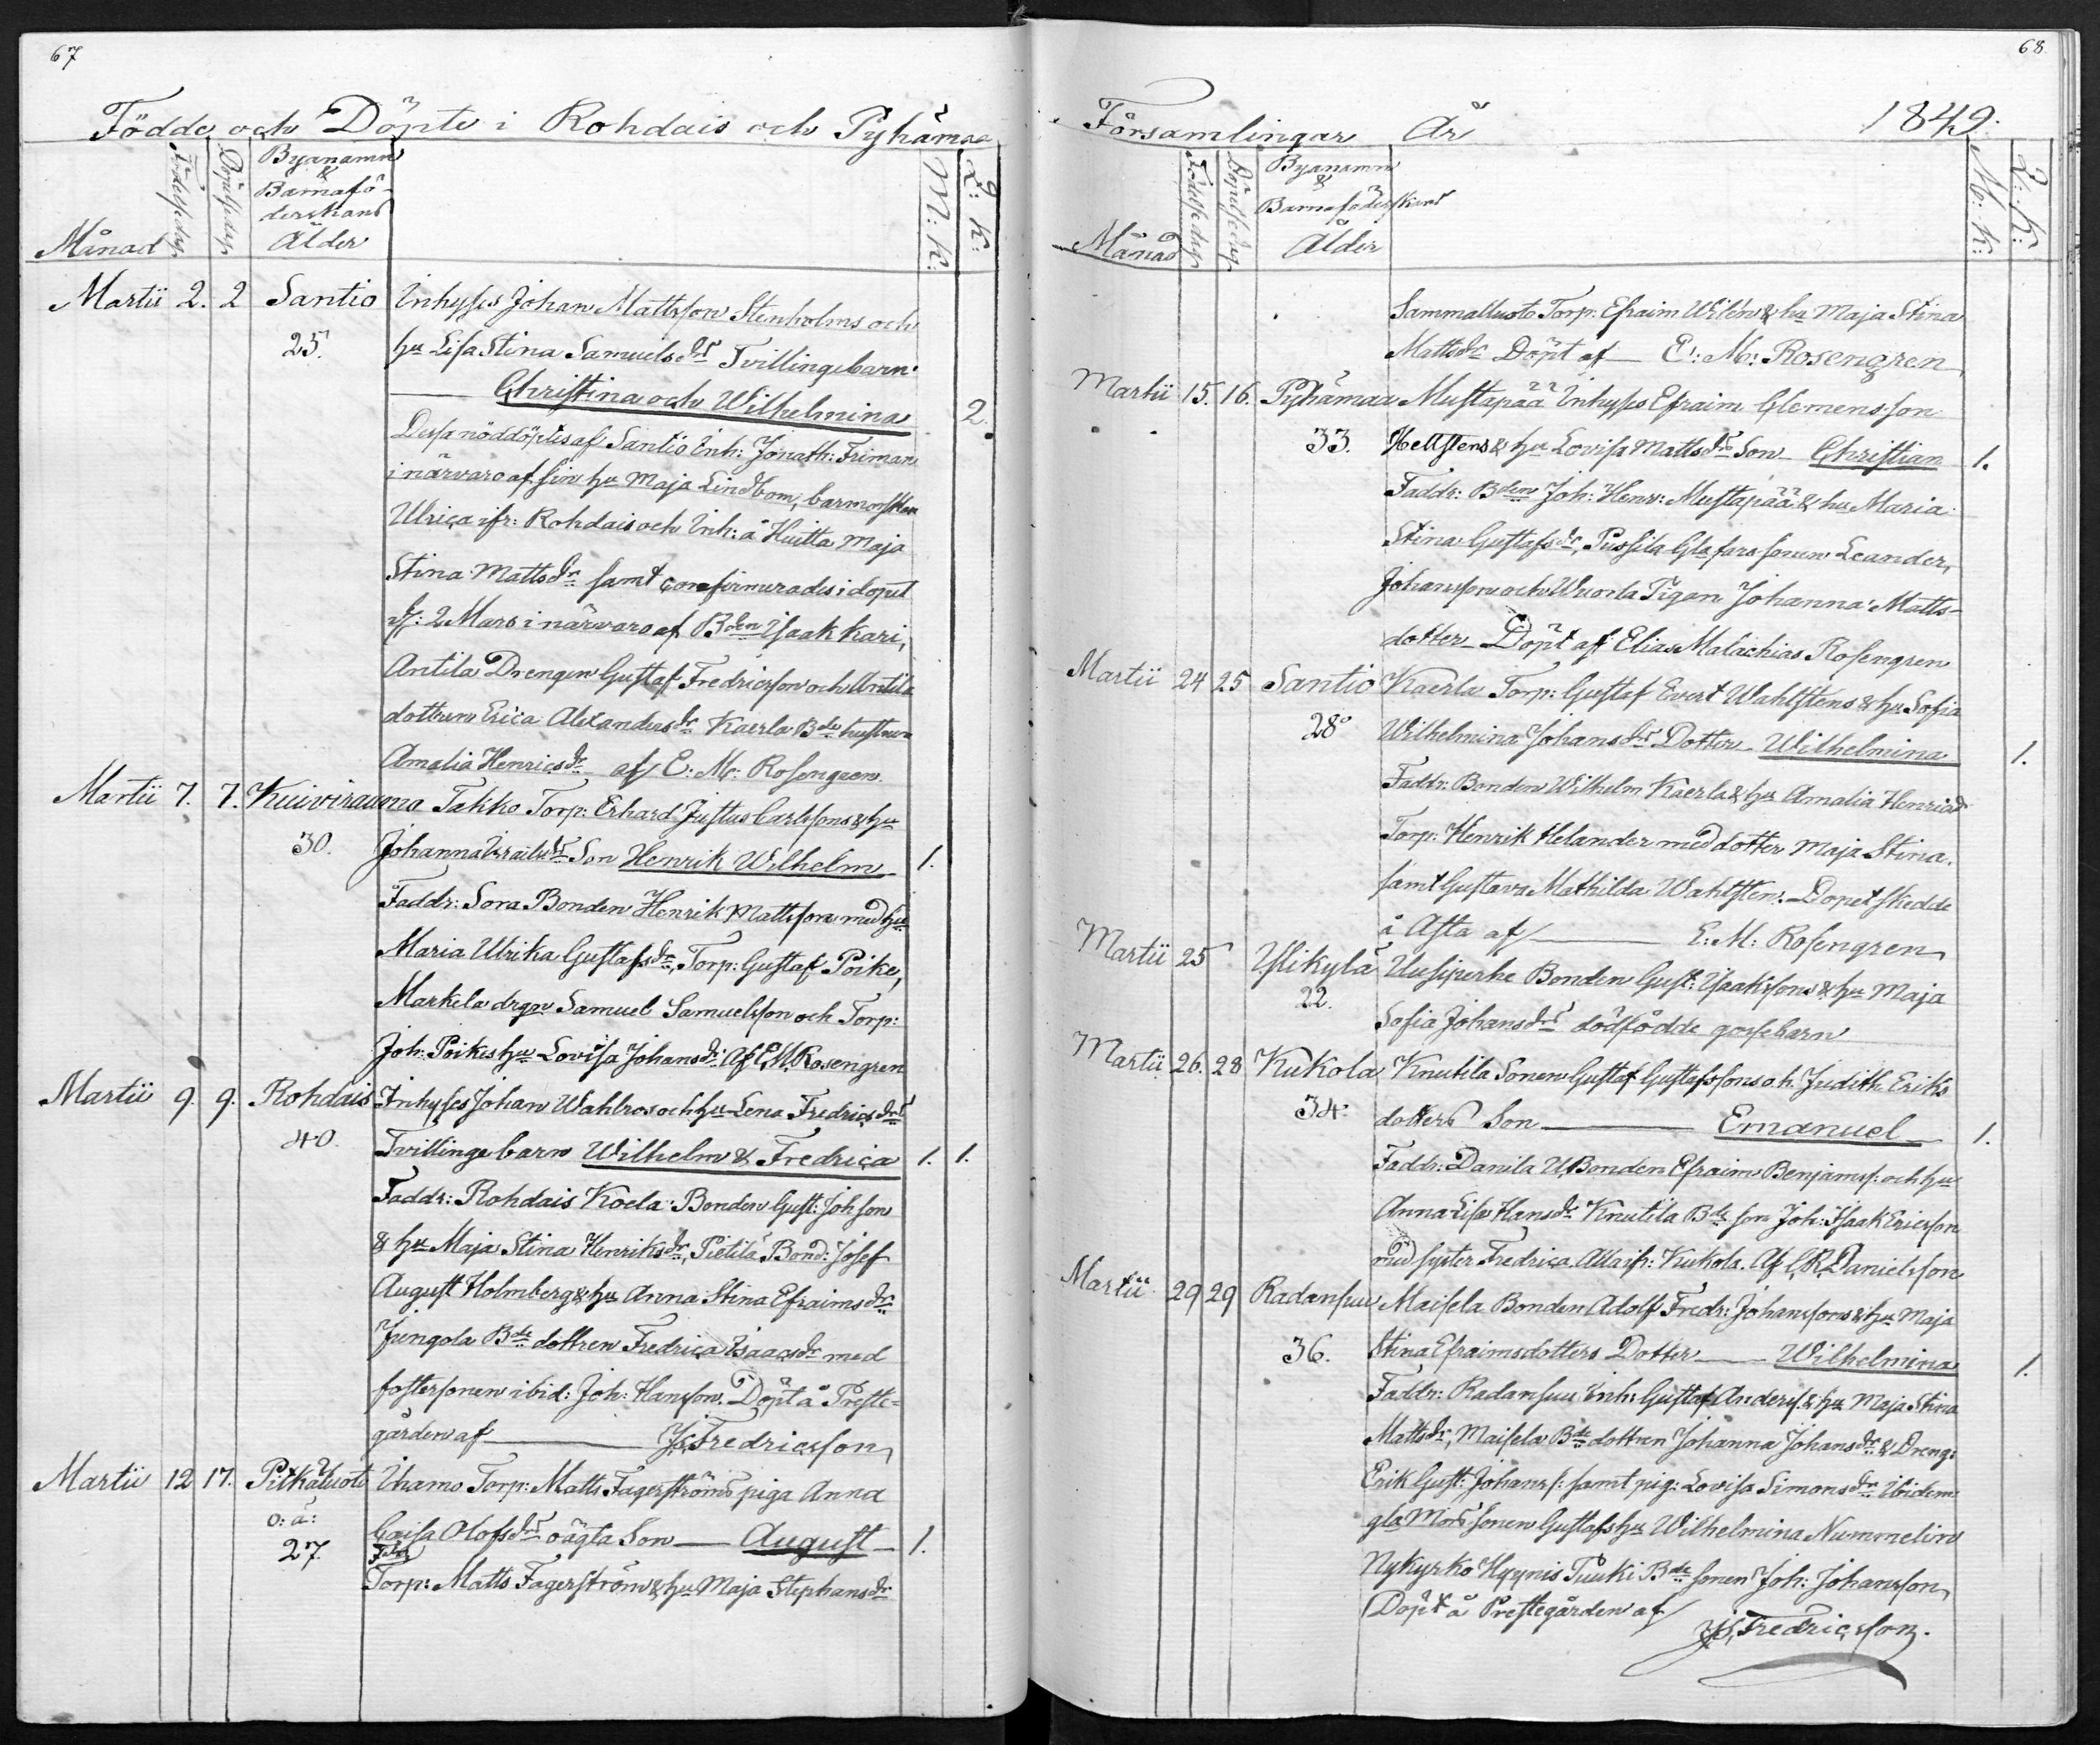 67
Födde och Döpte i Rohdais och Pyhämaa
Månad Födelsedag Döpelsedag Byanamn & Barnaföderskans Ålder M: K: Q: K:
Martii 2. 2 Santio Inhyses Johan Mattsson Stenholms och
25. hu Lisa Stina Samuelsdrs Tvillingebarn
Christina och Wilhelmina 2.
Dessa nöddöptes af Santio Inh: Jonath: Friman
i närvaro af sin hu Maja Lindbom, barmorskan
Ulrica ifr: Rohdais och Inh: å Huitta Maja
Stina Mattsdr samt confirmerades i dopet
d: 2 Mars i närvaro af Bden Isaak Kari,
Antila Drengen Gustaf Fredricsson och Antila
dottren Erica Alexandersdr Kaerla Bde hustrun
Amalia Henricsdr af E: M: Rosengren.
Martii 7. 7. Kuivirauma Takko Torp: Erhard Justus Carlssons & hu
30. Johanna Israelsdrs Son Henrik Wilhelm 1.
Faddr: Sora Bonden Henrik Mattsson med hu
Maria Ulrika Gustafsdr, Torp: Gustaf Poike,
Markela drgn Samuel Samuelsson och Torp:
Joh: Poikes hu Lovisa Johansdr Af E M Rosengren
Martii 9. 9. Rohdais Inhyses Johan Wahlros och hu Lena Fredricsdrs
40. Tvillinge barn Wilhelm & Fredrica 1. 1.
Faddr: Rohdais Koela Bonden Gust: Johsson
& hu Maja Stina Henriksdr, Pietilä Bond: Josef
August Holmberg & hu Anna Stina Efraimsdr
Jungola Bde dottren Fredrica Isaacsdr med
fostersonen ibid: Joh: Hansson. Döpt å Preste-
gården af Js Fredricsson
Martii 12 17. Pitkäluoto Ihamo Torp: Matts Fagerströms piga Anna
o: ä:
27. Caisa Olofsdrs oägta Son August 1.
Fadr
Torp: Matts Fagerström & hu Maja Stephansdr
68.
Församlingar År 1849.
Månad Födelsedag Döpelsedag Byanamn & Barnaföderskans Ålder M: K: Q: K:
Sammalluoto Torp: Efraim Wilén & hu Maja Stina
Mattsdr Döpt af E: M: Rosengren
Martii 15. 16. Pyhämaa Mustapää Inhyses Efraim Clemensson
33. Hellstens & hu Lovisa Mattsdrs Son Christian 1.
Faddr: Bden Joh: Henr: Mustapää & hu Maria
Stina Gustafsdr, Pussila Glafars sonen Leander
Johansson och Wuorla Pigan Johanna Matts-
dotter Döpt af Elias Malachias Rosengren
Martii 24 25 Santio Kaerla Torp: Gustaf Evert Wahlstens & hu Sofia
28. Wilhelmina Johansdrs Dotter Wilhelmina 1.
Faddr: Bonden Wilhelm Kaerla & hu Amalia Henricsdr
Torp: Henrik Helander med dotter Maja Stina
samt Gustava Mathilda Wahlsten. Dopet skedde
å Asta af E: M: Rosengren
Martii 25 Ylikylä Uusiperhe Bonden Gust: Isaakssons & hu Maja
22. Sofia Johansdrs dödfödde gossebarn
Martii 26. 28 Kukola Knutila Sonen Gustaf Gustafssons o. h. Judith Eriks
34. dotters Son Emanuel 1.
Faddr: Danila UBonden Efraim Benjamss: och hu
Anna Lisa Hansdr Knutila Bde son Joh: Isaak Ericsson
med syster Fredrica Allaifr: Kukola. Af C R Danielsson
Martii 29 29 Radansuu Maisela Bonden Adolf Fredr: Johanssons & hu Maja
36. Stina Efraimsdotters Dotter Wilhelmina 1.
Faddr: Radansuu Inh: Gustaf Anderss. & hu Maja Stina
Mattsdr, Maisela Bde dottren Johanna Johansdr & Dreng:
Erik Gust: Johanss: samt pig: Lovisa Simonsdr ibidem
gla Mors sonen Gustafs hu Wilhelmina Nummelin
Nykyrko Hyynis Tuuki Bde sonen Joh: Johansson
Döpt å Prestegården af Js Fredricsson.